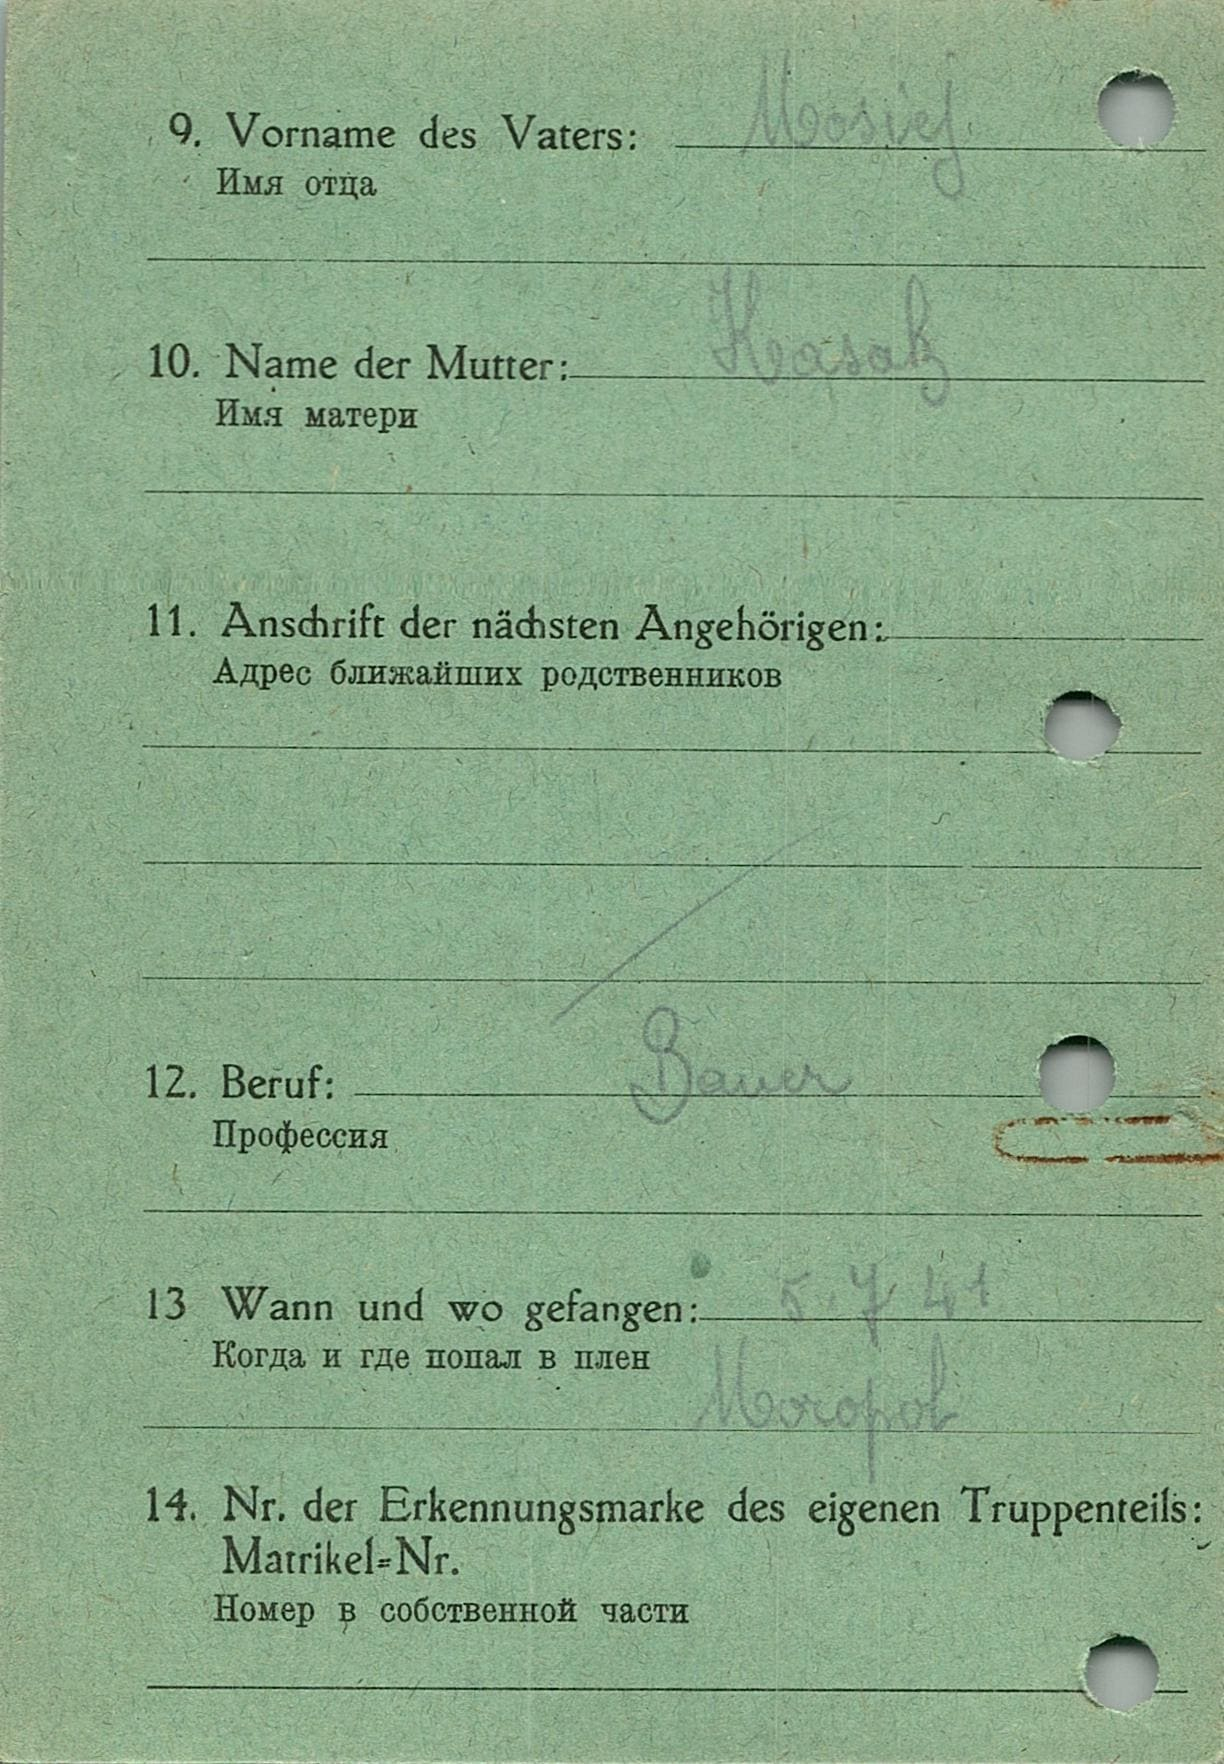 9. Vorname des Vaters: Mosiej
Имя отца
10. Name der Mutter: Kasak
Имя матери
11. Anschrift der nächsten Angehörigen:
Адрес ближайших родственников
12. Beruf: Bauer
Профессия
13 Wann und wo gefangen: 5. 7 41
Когда и где попал в плен
Moropol
14. Nr. der Erkennungsmarke des eigenen Truppenteils:
Matrikel=Nr.
Номер в собственной части